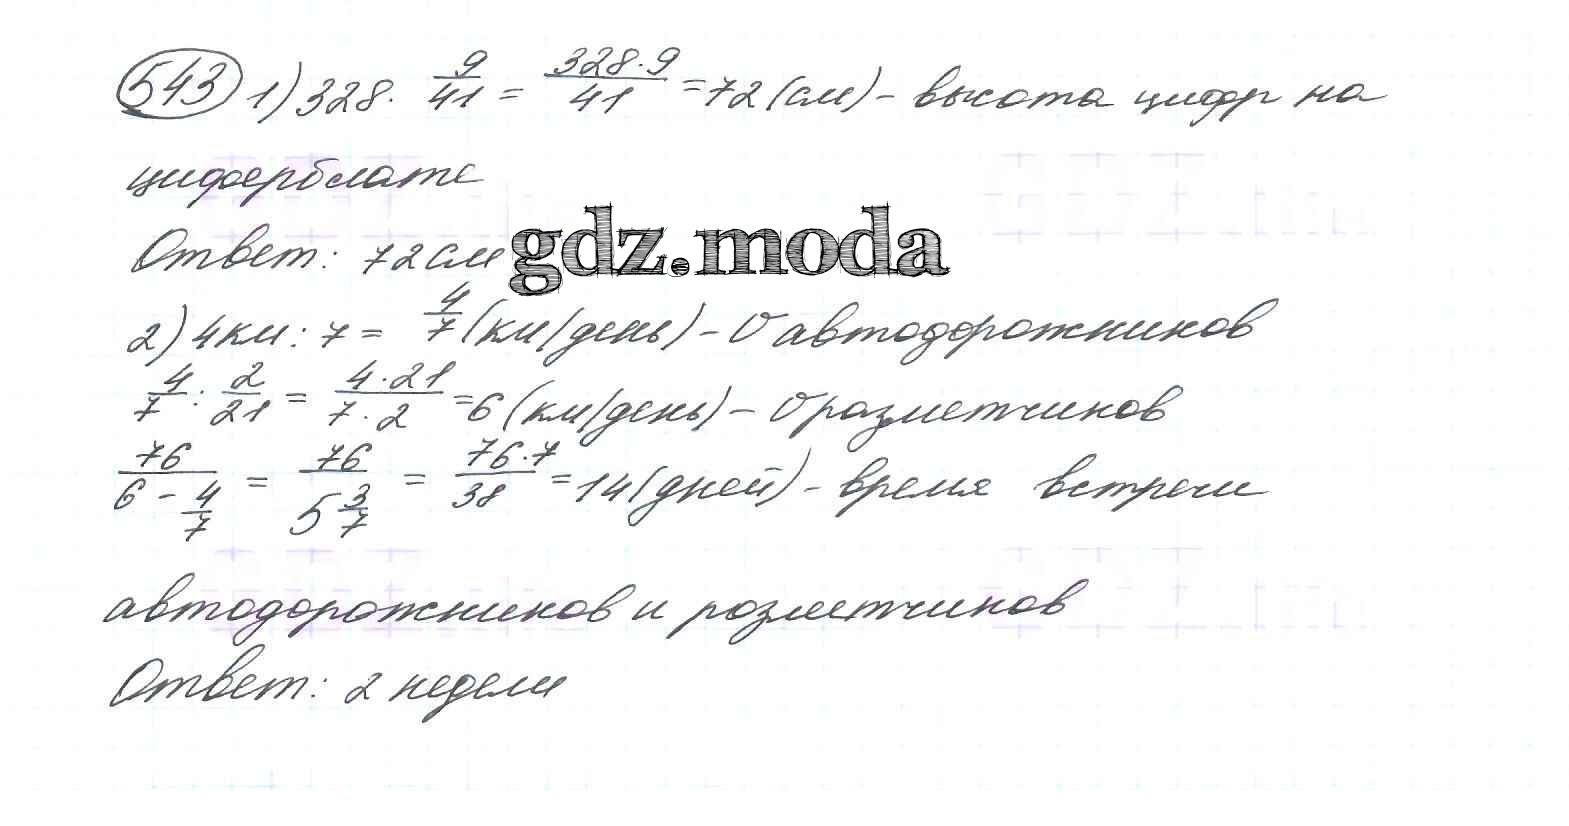 543 1) 328 · 9/41 = 328·9/41 = 72 (см) – высота цифр на
циферблате
Ответ: 72 см
gdz.moda
2) 4км : 7 = 4/7 (км/день) – υ автодорожников
4/7 : 2/21 = 4·21/7·2 = 6 (км/день) – υ разметчинов
76/(6 – 4/7) = 76/(5 3/7) = 76·7/38 = 14 (дней) – время встречи
автодорожников и розметчинов
Ответ: 2 недели